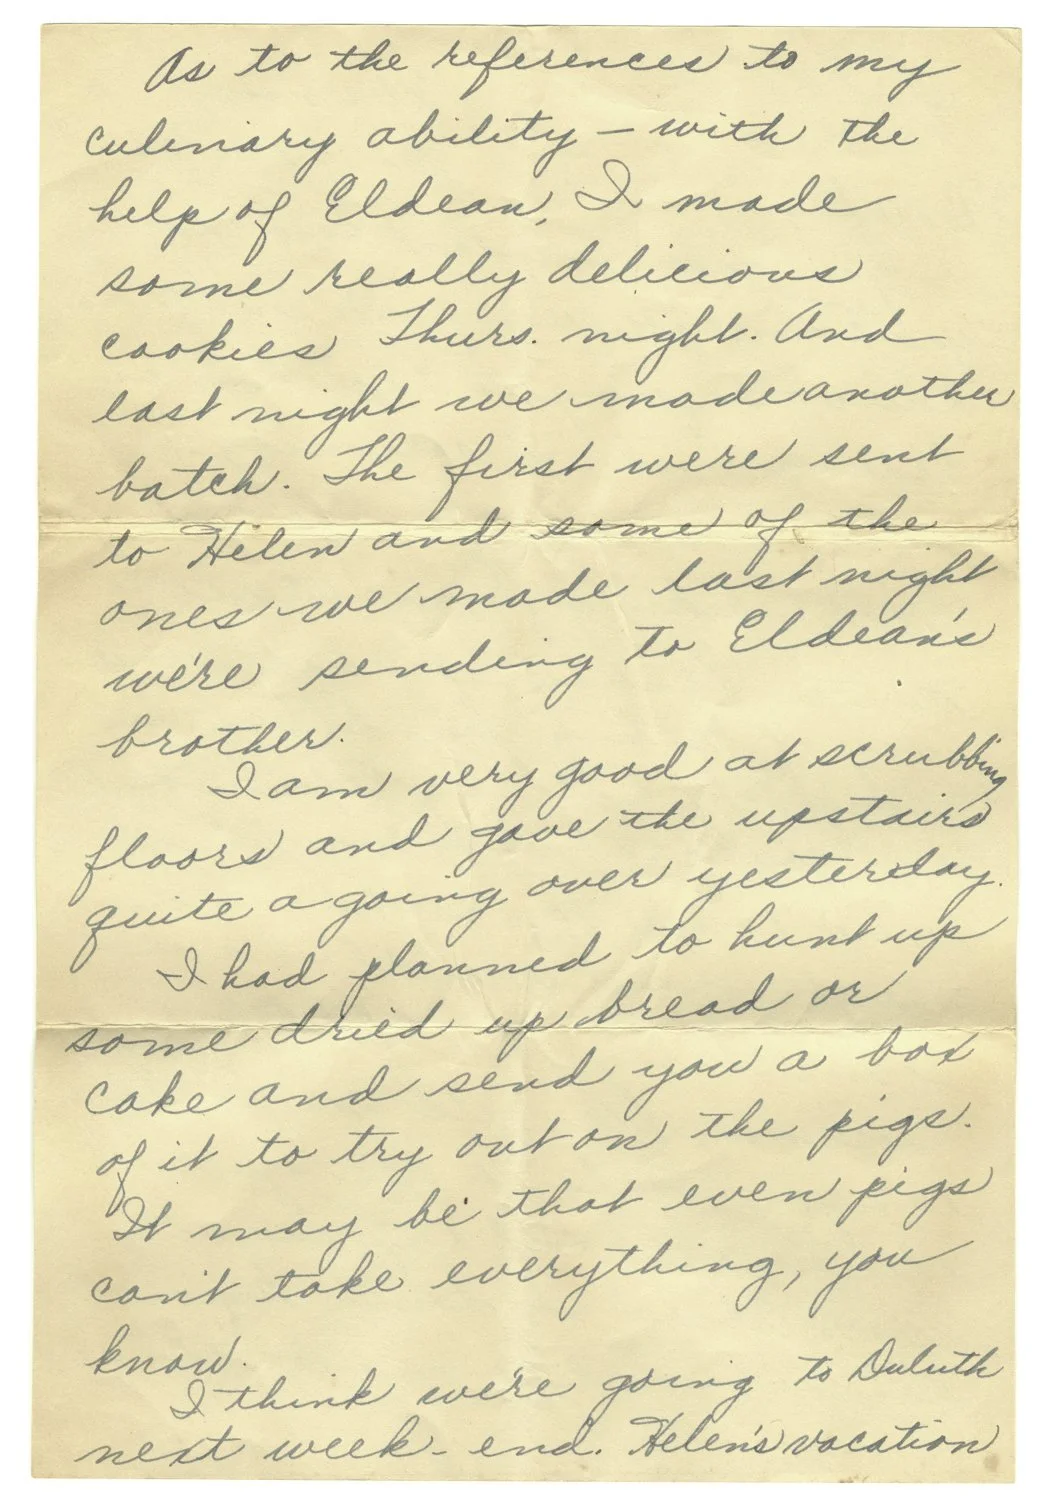 As to the references to my
culinary ability – with the
help of Eldean, I made
some really delicious
cookies Thurs. night. And
last night we made another
batch. The first were sent
to Helen and some of the
ones we made last night
we're sending to Eldean's
brother.
I am very good at scrubbing
floors and gave the upstairs
quite a going over yesterday.
I had planned to hunt up
some dried up bread or
cake and send you a box
of it to try out on the pigs.
It may be that even pigs
can't take everything, you
know.
I think we're going to Duluth
next week-end. Helen's vacation